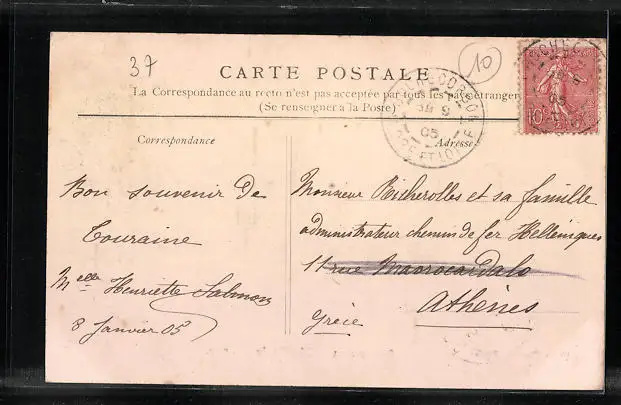 37
10
CARTE POSTALE
La Correspondance au recto n'est pas acceptée par tous les pays étrangers
(Se renseigner à la Poste)
Correspondance
Adresse
Bon souvenir de
Touraine
Melle Henriette Salmon
8 Janvier 05
Monsieur Richerolles et sa famille
administrateur chemin de fer Helléniques
11 rue Maorocordalo
Athènes
Grèce
05
ET LOIRE
10c